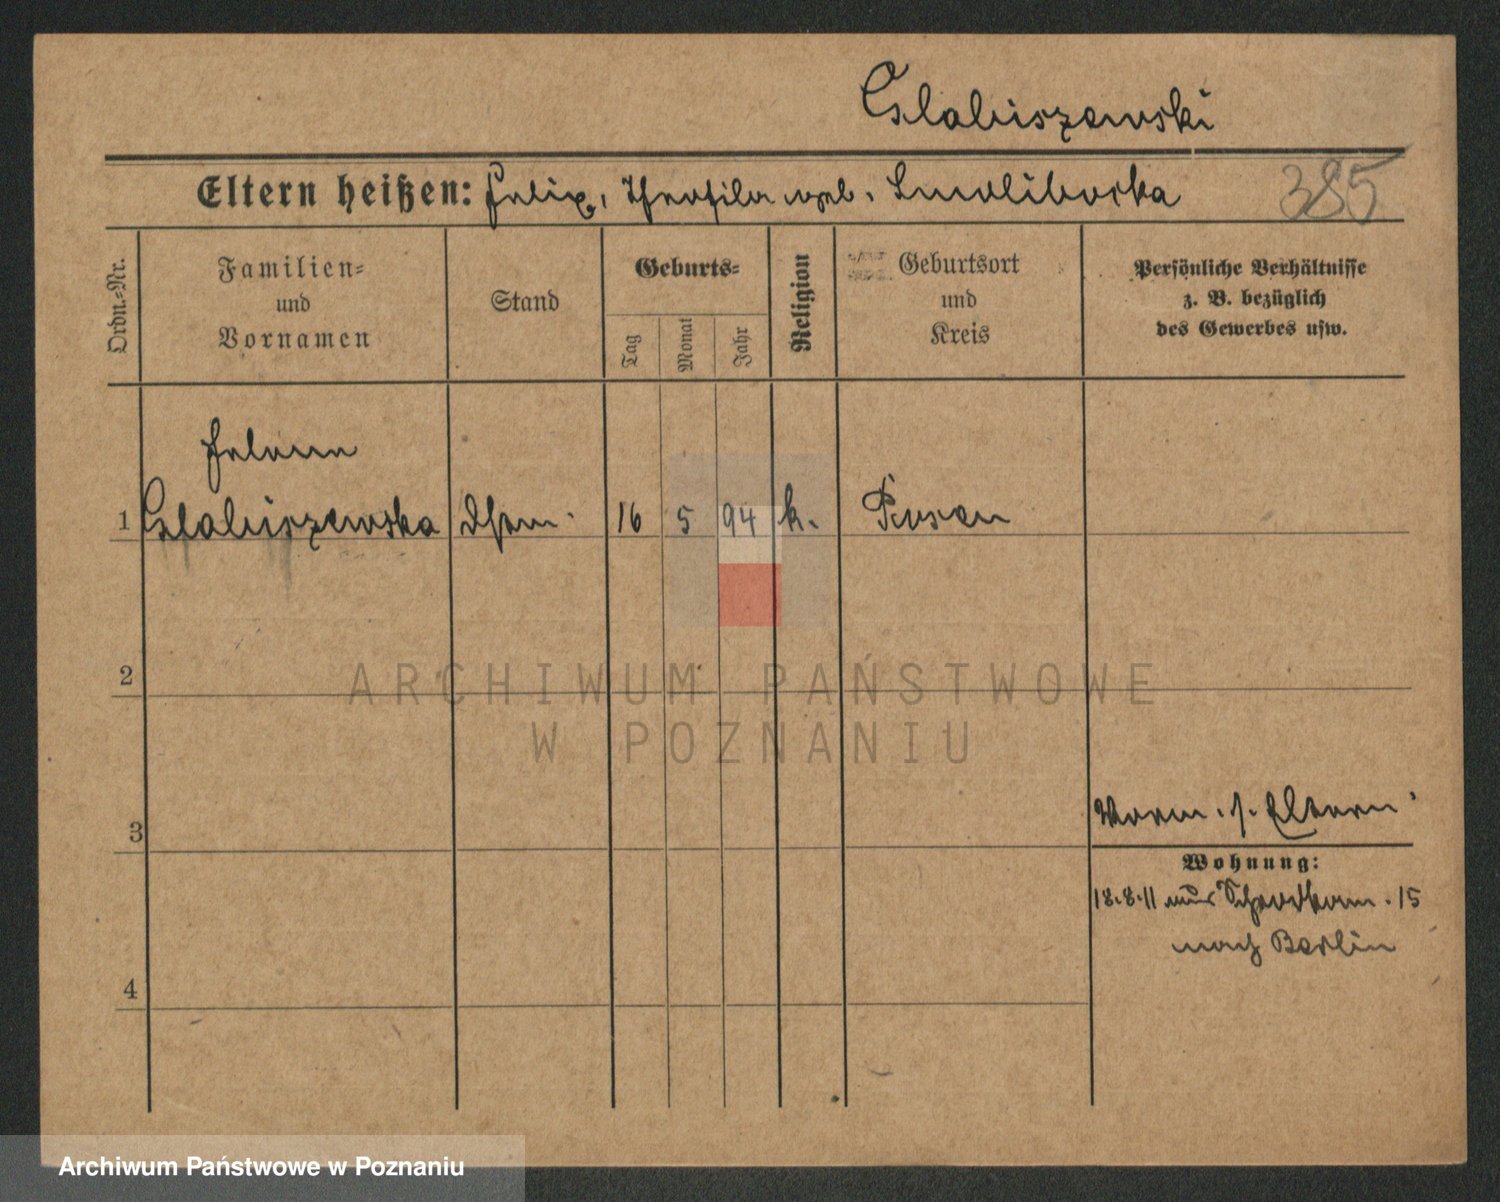 Eltern heißen: Felix, Theofila geb.
385
Ordn.=Nr.
Familien=
und
Vornamen
Stand
Geburts=
Tag
Monat
Jahr
Religion
Geburtsort
und
Kreis
Persönliche Verhältnisse
z. B. bezüglich
des Gewerbes usw.
Helene
1 16 5 94 k. Posen
2
3
Vorm. s. Eltern
Wohnung:
18.8.11 15
nach Berlin
4
ARCHIWUM PAŃSTWOWE
W POZNANIU
Archiwum Państwowe w Poznaniu